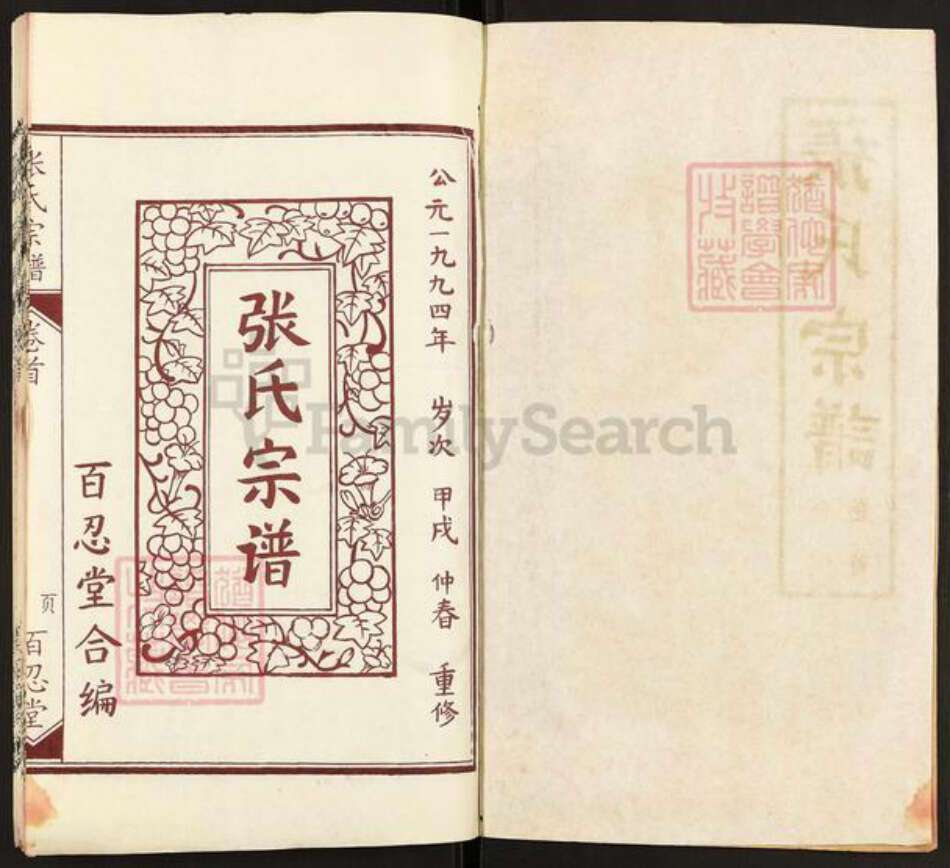 公元一九九四年 岁次 甲戌 仲春 重修
张氏宗谱
百忍堂合编
张氏宗谱
卷首
页
百忍堂
譜學會
收藏
張氏宗譜
FamilySearch